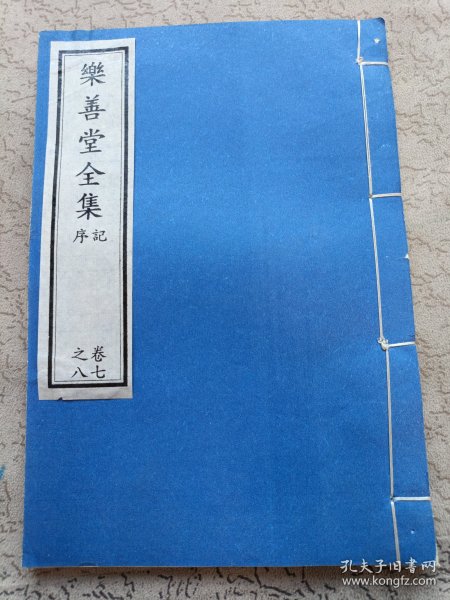 樂善堂全集
記
序
卷七
之八
孔夫子旧书网
www.kongfz.com